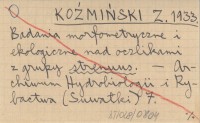 KOŹMIŃSKI Z. 1933.
Badania morfometryczne i
ekologiczne nad oczlikami
z grupy strenuus. — Ar-
chiwum Hydrobiologii i Ry-
bactwa (Suwałki) 7.